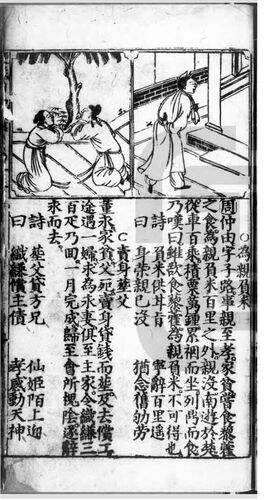 ○為親負米
周仲由字子路事親至孝家貧嘗食藜藿
之食為親負米百里之外親沒南遊於楚
從車百乘積粟萬鍾累裀而坐列鼎而食
乃嘆曰雖欲食藜藿為親負米不可得也
詩 負米供甘旨 寧辭百里遥
曰 身榮親已沒 猶念舊劬勞
○賣身葬父
董永家貧父死賣身貸錢而葬及去償工
途遇一婦求為永妻俱至主家令織縑三
百疋乃回一月完成歸至會所槐陰遂辭
永而去
詩 葬父貸方兄 仙姬陌上迎
曰 織縑償主債 孝感動天神